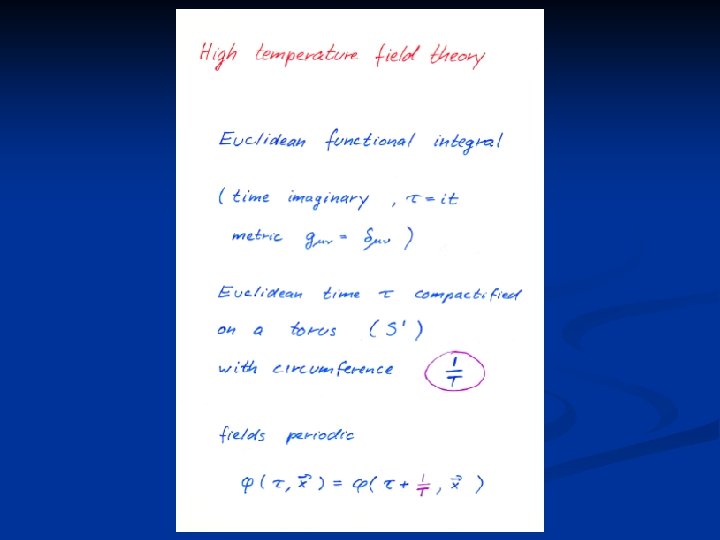 High temperature field theory
Euclidean functional integral
( time imaginary , τ = it
metric gμν = δμν )
Euclidean time τ compactified
on a torus ( S¹ )
with circumference 1/T
fields periodic
φ ( τ, x⃗ ) = φ( τ + 1/T , x⃗ )